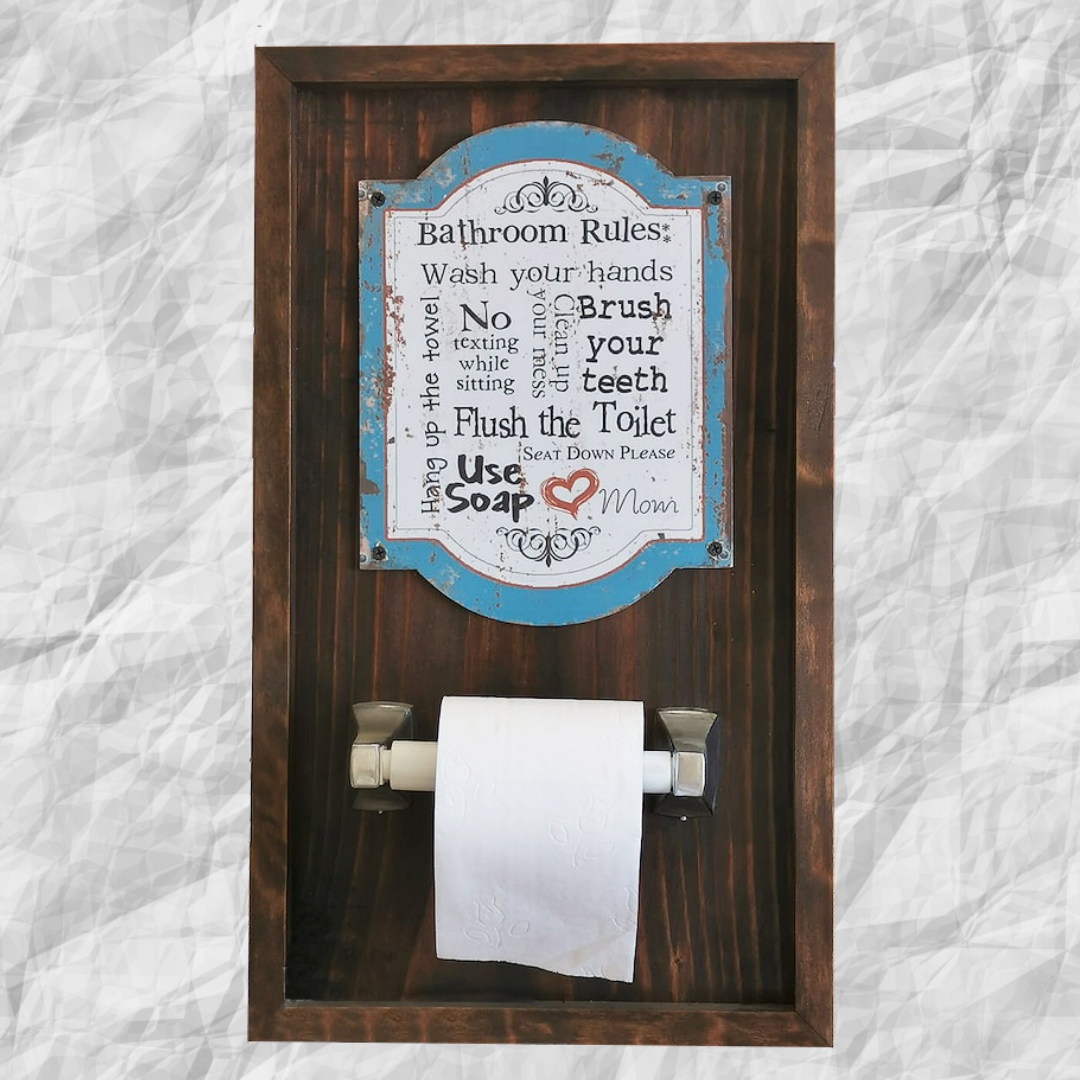 Bathroom Rules:
Wash your hands
Hang up the towel
No
texting
while
sitting
Clean up
your mess
Brush
your
teeth
Flush the Toilet
Seat Down Please
Use
Soap
Mom